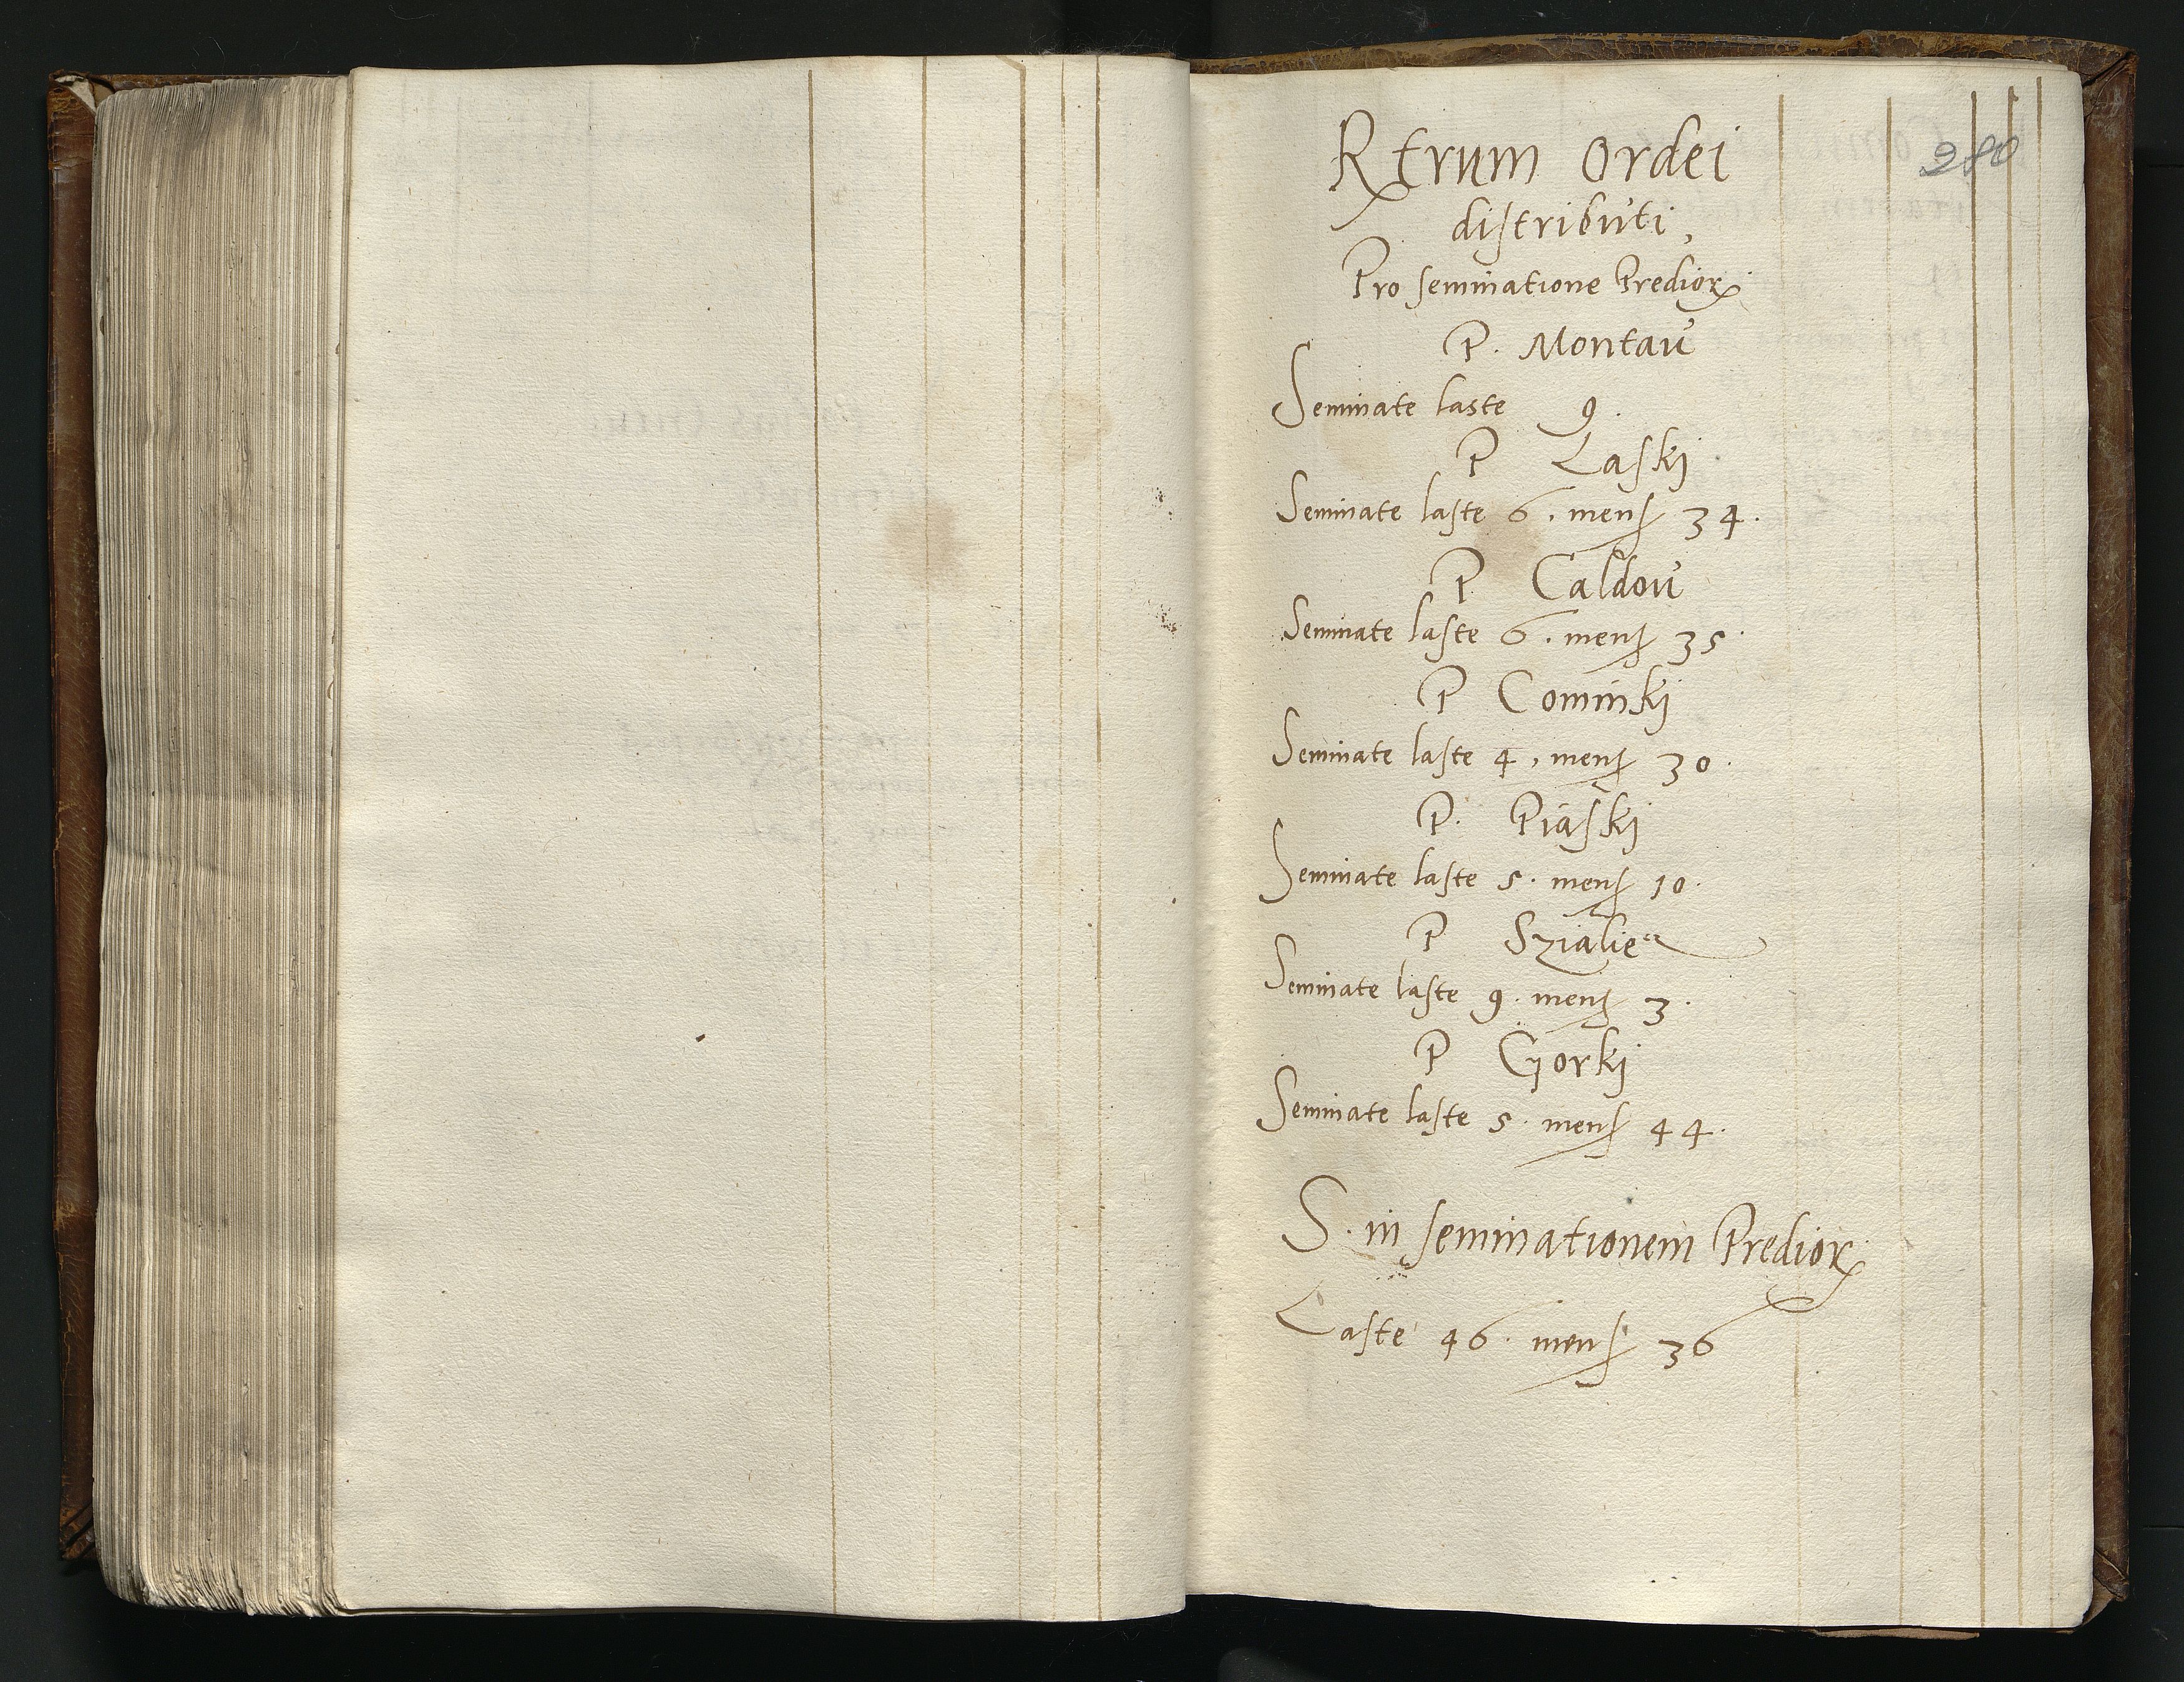 280
Rtrum Ordei
distributi
Pro seminatione Predioꝝ
P. Montau
Seminate laste 9.
P Laskj
Seminate laste 6. mens 34.
P Caldou
Seminate laste 6. mens 35.
P Cominskj
Seminate laste 4. mens 30.
P. Piaskj
Seminate laste 5. mens 10.
P Szialie
Seminate laste 9. mens 3.
P Gorkj
Seminate laste 5. mens 44.
S. in seminationem Predioꝝ
Laste 46. mens 36